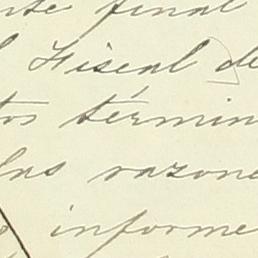 nte final
l Fiscal de
tos términ
las razone
informe